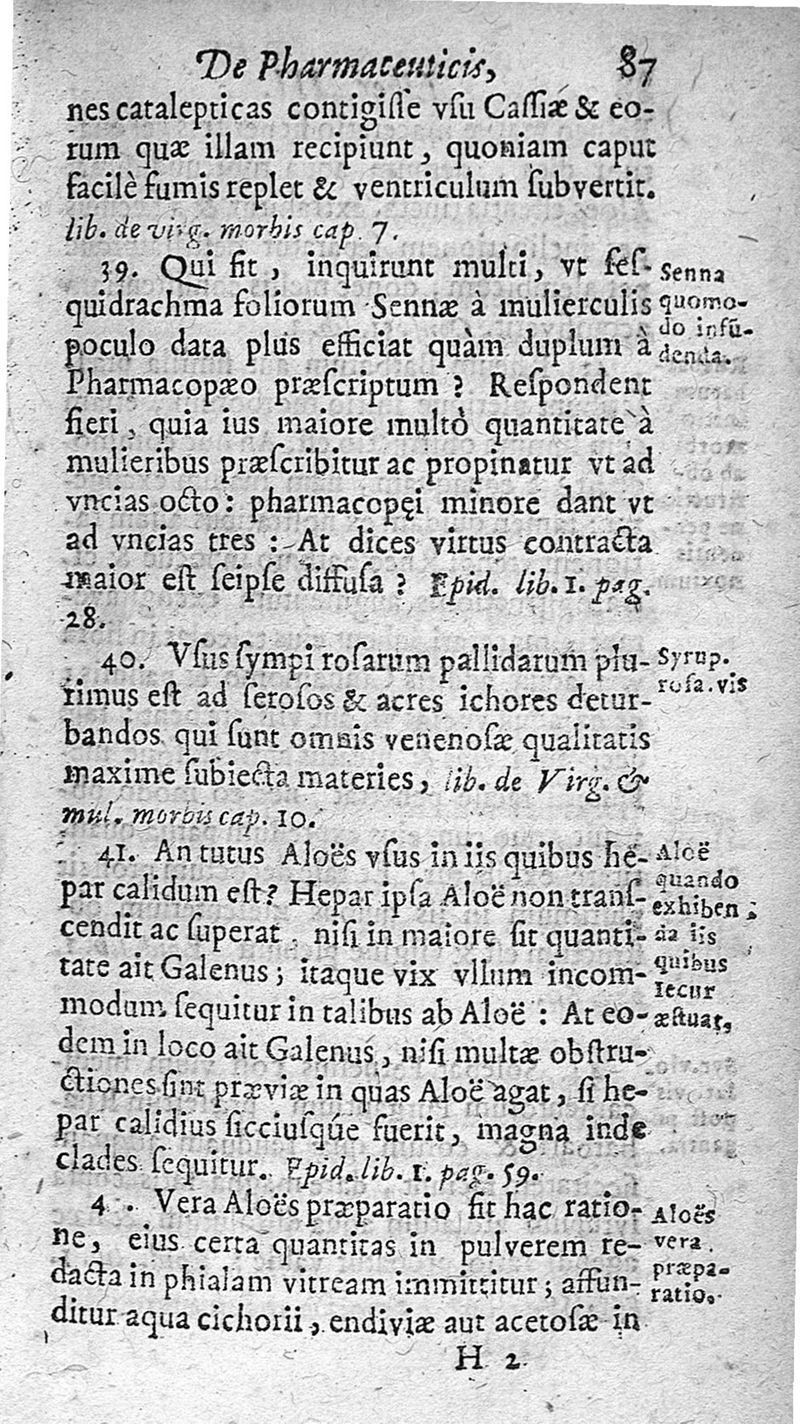 De Pharmaceuticis, 87
nes catalepticas contigiſſe vſu Caſſiæ & eo-
rum quæ illam recipiunt, quoniam caput
facilè fumis replet & ventriculum ſubvertit.
lib. de virg. morbis cap. 7.
39. Qui fit, inquirunt multi, vt ſeſ-
quidrachma foliorum Sennæ à mulierculis
poculo data plus efficiat quàm duplum à
Pharmacopæo præſcriptum? Reſpondent
fieri, quia ius maiore multò quantitate à
mulieribus præſcribitur ac propinatur vt ad
vncias octo: pharmacopęi minore dant vt
ad vncias tres: At dices virtus contracta
maior eſt ſeipſe diffuſa? Epid. lib. 1. pag.
28.
Senna
quomo-
do infū-
denda.
40. Vſus ſympi roſarum pallidarum plu-
rimus eſt ad ſeroſos & acres ichores detur-
bandos qui ſunt omnis venenoſæ qualitatis
maxime ſubiecta materies, lib. de Virg. &
mul. morbis cap. 10.
Syrup.
roſa. vis
41. An tutus Aloës vſus in iis quibus he-
par calidum eſt? Hepar ipſa Aloë non tranſ-
cendit ac ſuperat, niſi in maiore ſit quanti-
tate ait Galenus; itaque vix vllum incom-
modum ſequitur in talibus ab Aloë: At eo-
dem in loco ait Galenus, niſi multæ obſtru-
ctiones ſint præviæ in quas Aloë agat, ſi he-
par calidius ſicciuſqúe fuerit, magna inde
clades ſequitur. Epid. lib. 1. pag. 59.
Aloë
quando
exhiben
da iis
quibus
iecur
æſtuat,
4 . Vera Aloës præparatio fit hac ratio-
ne, eius certa quantitas in pulverem re-
dacta in phialam vitream immittitur; affun-
ditur aqua cichorii, endiviæ aut acetoſæ in
Aloës
vera
præpa-
ratio.
H 2